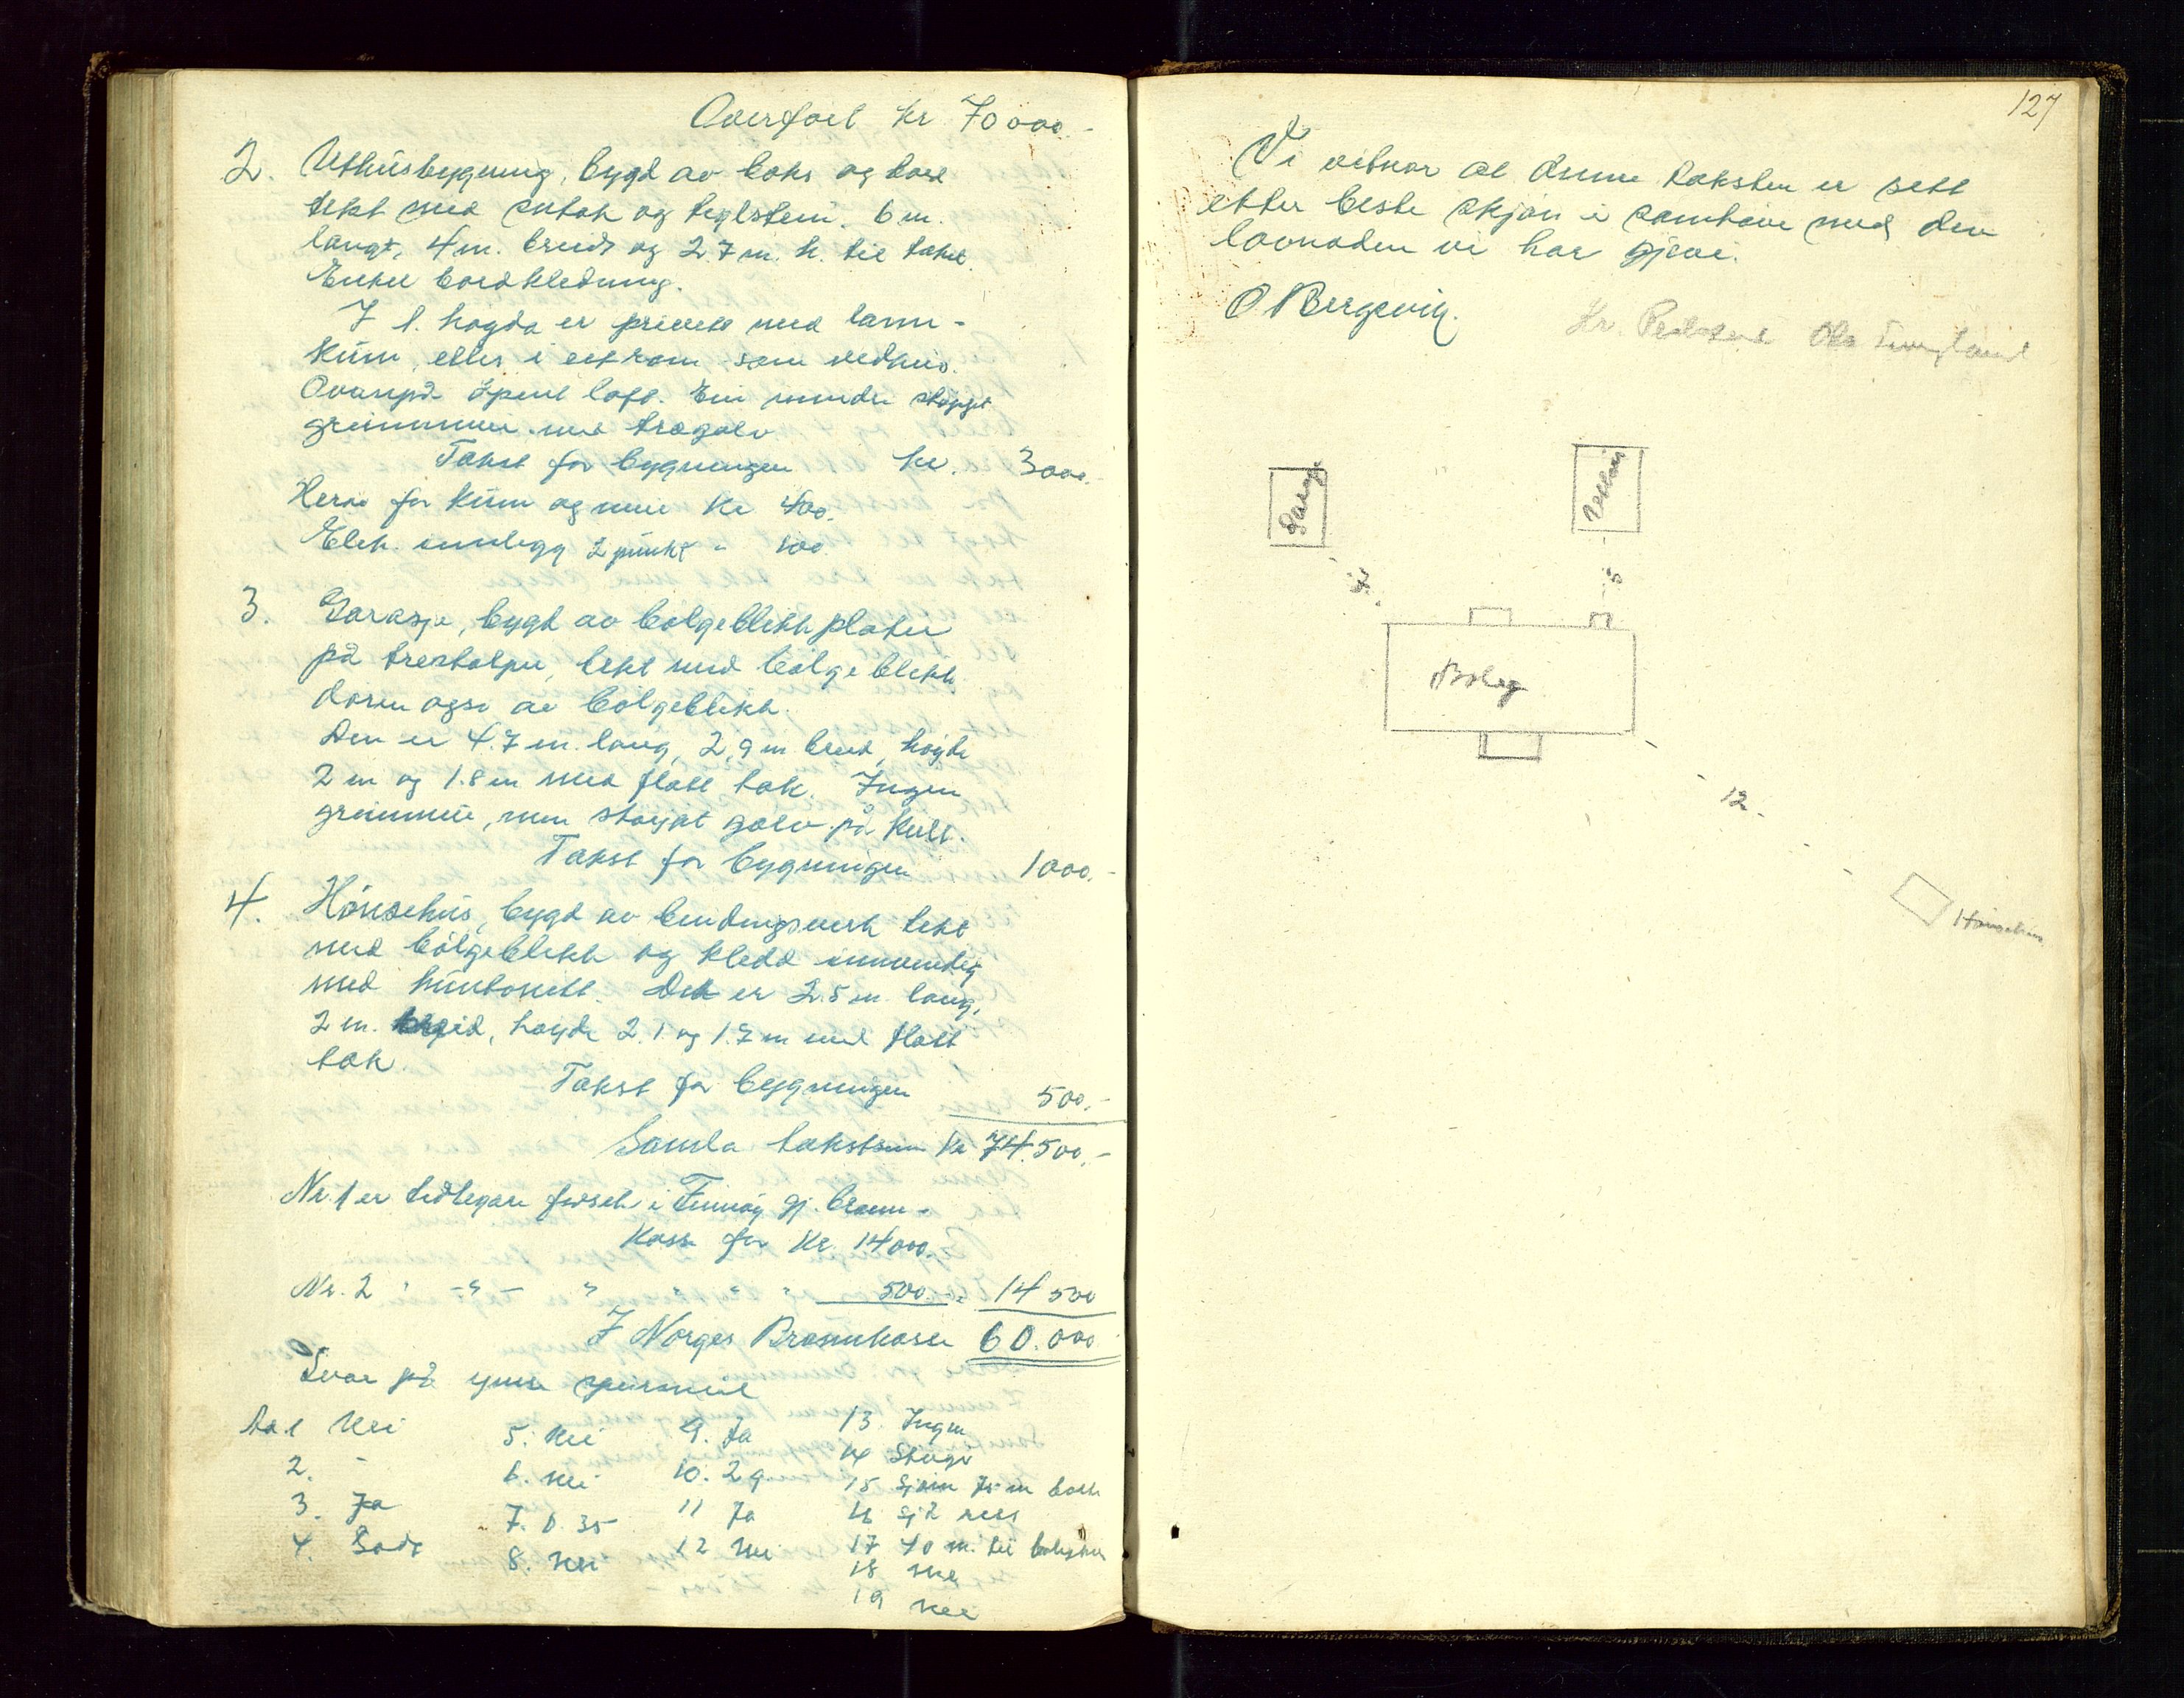 Overført kr 70 000.-
2. Uthusbygning, bygd av boks og bord
tekt med sutak og teglstein. 6 m.
langt, 4 m. breidt og 2.7 m. h. til taket.
Enkel bordkledning.
I 1. høgda er privett med larm-
kum, ellers i eet rom som vedhus.
Ovanpå åpent loft. Ein mindre støypt
grunnmur med tregolv
Takst for bygningen kr. 3000.-
Herav for kum og mur kr 400.
Elek. innlegg 2 punkt " 100.
3. Garasje, bygd av bølgeblikk plater
på trestolper, tekt med bølgeblikk
døren også av bølgeblikk.
Den er 4.7 m. lang, 2,9 m breid, høyde
2 m og 1.8 m med flatt tak. Ingen
grunnmur, men støypt golv på kult.
Takst for bygningen 1000.-
4. Hønsehus, bygd av bindingsverk tekt
med bølgeblikk og kledd innvendig
med huntonitt. Det er 2.5 m. lang,
2 m. breid, høyde 2.1 og 1.7 m med flatt
tak.
Takst for bygningen 500.-
Samla takstsum kr 74.500.-
Nr. 1 er tidlegare forsek i Finnøy gj. brann-
kasse for kr. 14000.-
Nr. 2 " -"- " " " " 500.- 14 500
I Norges Brannkasse 60.000
Svar på ymse spursmål
Til 1 Nei
2. -
3. Ja
4. Godt
5. Nei
6. Nei
7. 0.35
8. Nei
9. Ja
10. 2 g.
11 Ja
12 Nei
13. Ingen
14 Stige
15 Sjøen 75 m
16
17 40 m. til
18 Nei
19 Nei
127
Vi vitnar at denne taksten er sett
etter beste skjøn i samhøve med den
lovnaden vi har gjeve.
O Bergevik.
Kr. Ola
Garage
Uthus
7.
5
Bolig
12.
Hønsehus